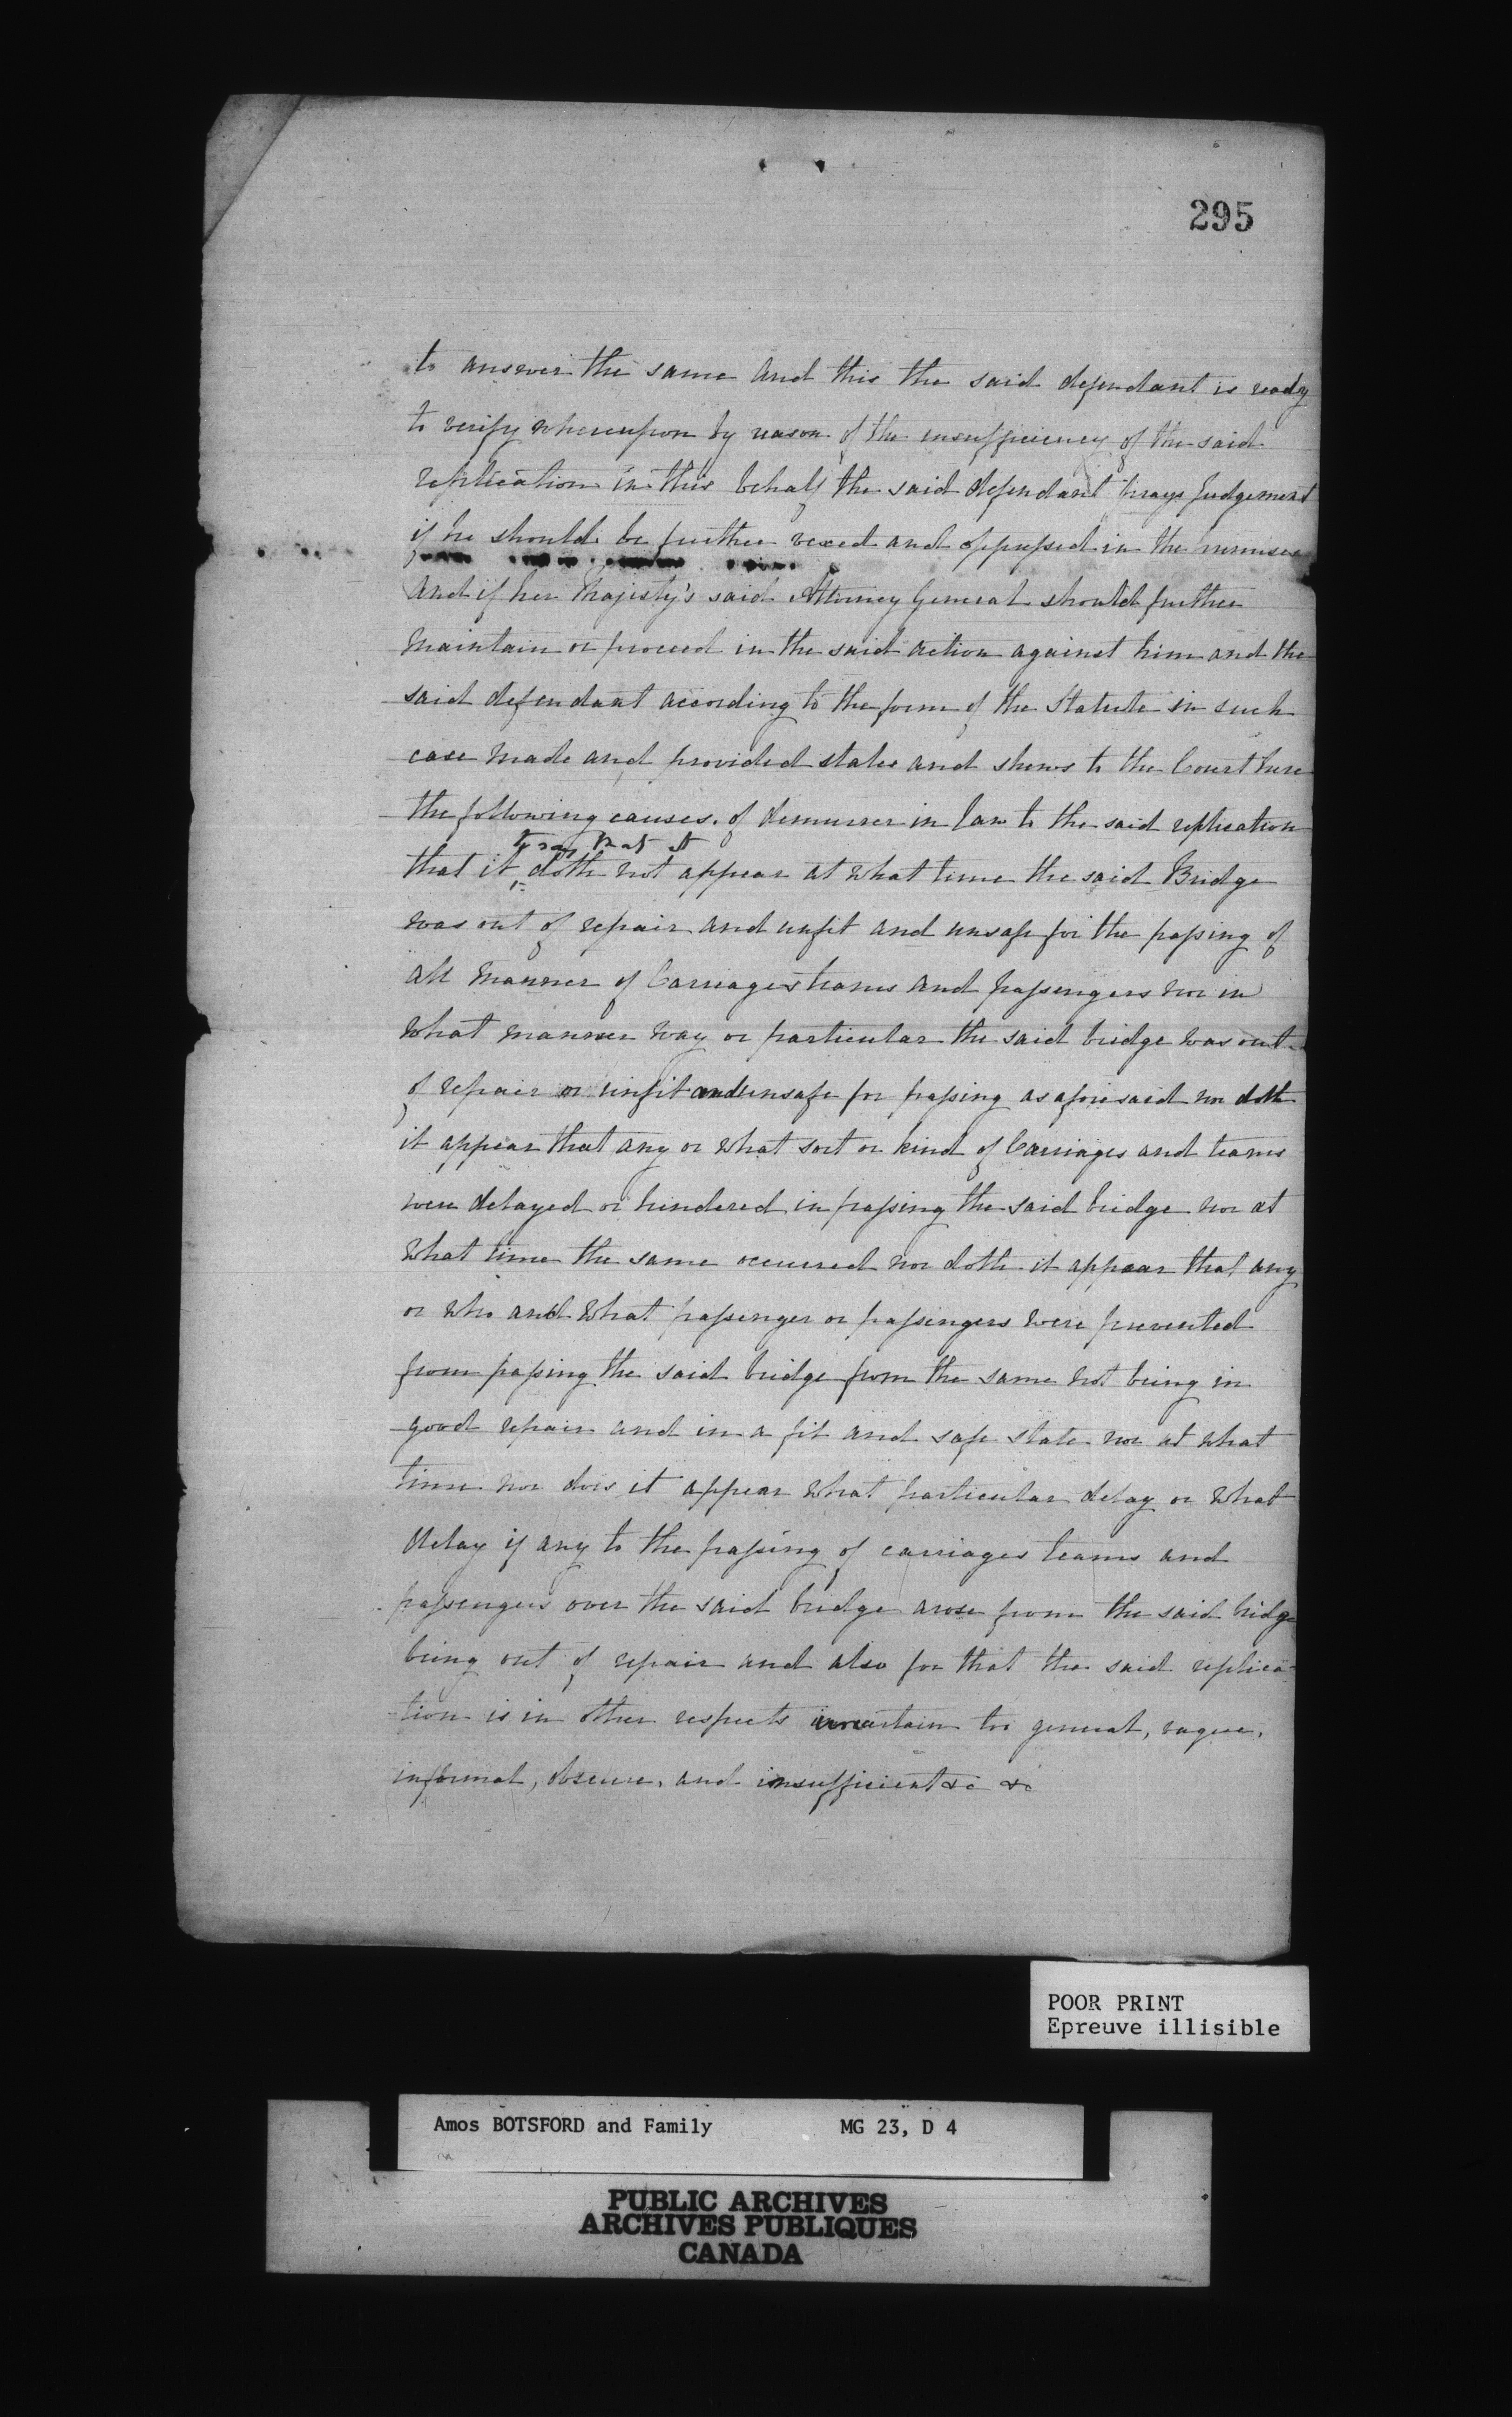 295
to answer the same And this the said defendant is ready
to verify whereupon by reason of the insufficiency of the said
replication in this behalf the said defendant prays Judgement
if he should be further vexed and oppressed in the premises
and if her Majesty's said Attorney General should further
maintain or proceed in the said action against him and the
said defendant according to the form of the Statute in such
case made and provided states and shews to the Court here
the following causes of demurrer in law to the said replication
to say that it
that it doth not appear at what time the said Bridge
was out of repair and unfit and unsafe for the passing of
all manner of Carriages teams and passengers nor in
what manner way or particular the said bridge was out
of repair or unfit and unsafe for passing as aforesaid nor doth
it appear that any or what sort or kind of Carriages and teams
were delayed or hindered in passing the said bridge nor at
what time the same occurred nor doth it appear that any
or who and what passenger or passengers were prevented
from passing the said bridge from the same not being in
good repair and in a fit and safe state nor at what
time nor does it appear what particular delay or what
delay if any to the passing of carriages teams and
passengers over the said bridge arose from the said bridge
being out of repair and also for that the said replica-
tion is in other respects uncertain too general, vague,
informal, obscure, and insufficient &c &c
POOR PRINT
Epreuve illisible
Amos BOTSFORD and Family MG 23, D 4
PUBLIC ARCHIVES
ARCHIVES PUBLIQUES
CANADA